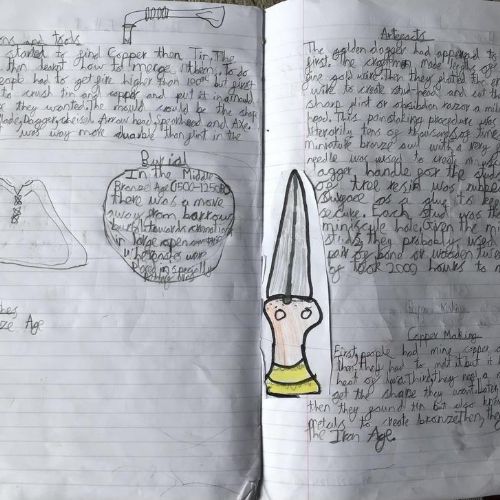 ons and tools
started to find Copper then Tin, The
then learnt how to merge them, to do
people had to get fire higher than 1000° but first
to crush tin and copper and put it in a mould
they wanted. The mould could be the shap
Blade, Dagger, chisel, Arrow head, spearhead and Axe.
was way more durable than flint in the
Burial
In the Middle
Bronze Age (1500-1250BC)
there was a move
away from barrow
burial towards cremation
in large open
Cremates were
placed in specially
ze Age
Artefacts
The golden dagger had appeared to
first. The craftman made lengths of
fine gold wire. Then they
wire to create stud-head and cut the
sharp flint or obsidian razor a mid
head. This panstaking procedure was
literarily tens of thousands of time
miniature bronze awl with a very
needle was used to create miniscule
dagger handle for the studs
of tree resin was rubbed
surface as a glue to keep
secure. Each stud was
miniscule hole, Given the mini
studs, they probably used
pair of bone or wooden twee
It took 2000 hours to
Copper Making
First, people had mine copper
Then, they had to melt it but it
heat of Third, they
get the shape they want. Later
then they found tin but also
metals to create bronze. Then, they
The Iron Age.